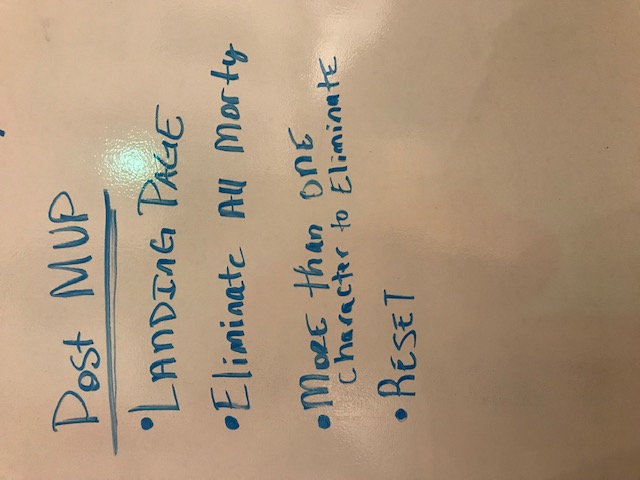 Post MVP
• LANDING PAGE
• Eliminate All Morty
• MORE than ONE
character to Eliminate
• RESET